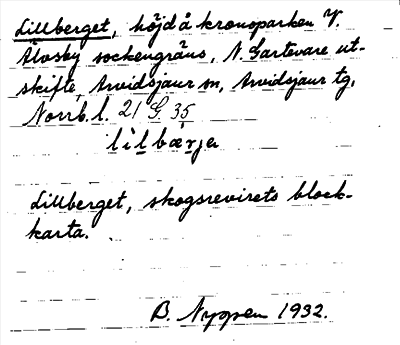 Lillberget, höjd å kronoparken V.
Älvsby sockengräns, N. Gartevare ut-
skifte, Arvidsjaur sn, Arvidsjaur tg,
Norrb. l. 21 G. 35
lìlbærje
Lillberget, skogsrevirets block-
karta.
B. Nygren 1932.